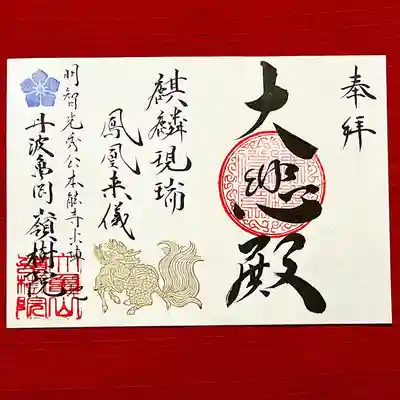 奉拝
大悲殿
麒麟現瑞
鳳凰来儀
明智光秀公本能寺出陣
丹波亀岡嶺樹院